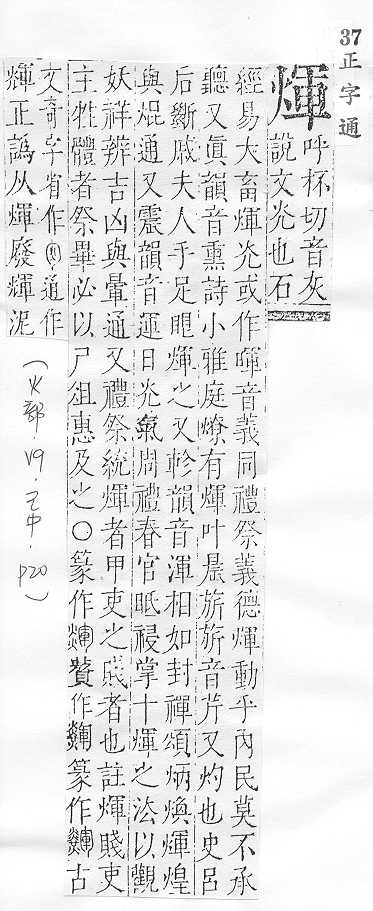 37 正字通
煇
呼杯切音灰
說文灮也石
經易大畜煇灮或作暉音義同禮祭義德煇動乎內民莫不承
聽又眞韻音熏詩小雅庭燎有煇叶晨旂旂音芹又灼也史呂
后斷戚夫人手足眼煇之又軫韻音渾相如封禪頌炳煥煇煌
與焜通又震韻音運日灮氣周禮春官眡祲掌十煇之法以觀
妖祥辨吉凶與暈通又禮祭統煇者甲吏之賤者也註煇賤吏
主牲體者祭畢必以尸俎惠及之○篆作贊作篆作古
文奇字省作通作
輝正譌从煇廢輝泥
(火部.V9.巳中.p20)